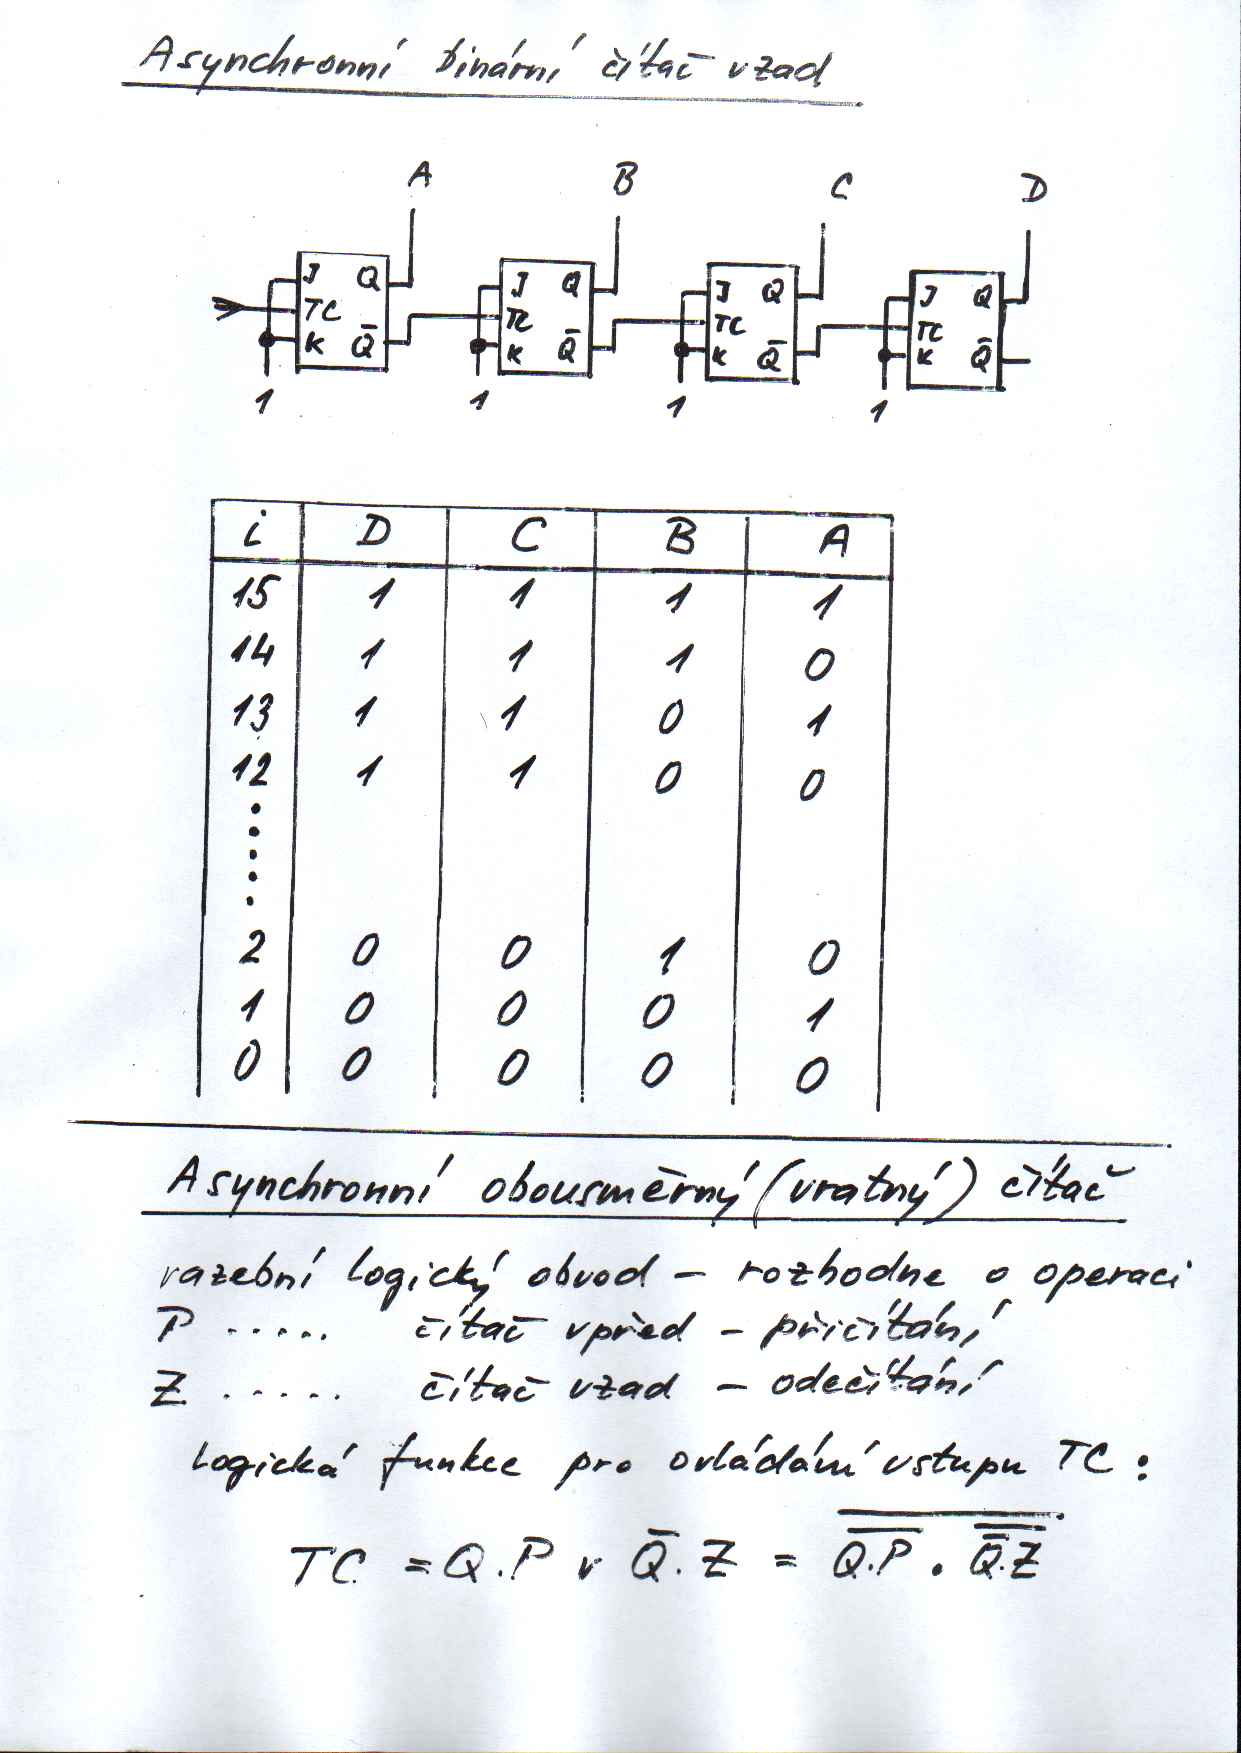 Asynchronní binární čítač vzad
A B C D
J Q J Q J Q J Q
TC TC TC TC
K Q̄ K Q̄ K Q̄ K Q̄
1 1 1 1
i D C B A
15 1 1 1 1
14 1 1 1 0
13 1 1 0 1
12 1 1 0 0
2 0 0 1 0
1 0 0 0 1
0 0 0 0 0
Asynchronní obousměrný (vratný) čítač
razební logický obvod – rozhodne o operaci
P ..... čítač vpřed – přičítání
Z ..... čítač vzad – odečítání
logická funkce pro ovládání vstupu TC :
TC = Q.P v Q̄.Z = \overline{\overline{Q.P} . \overline{Q̄.Z}}